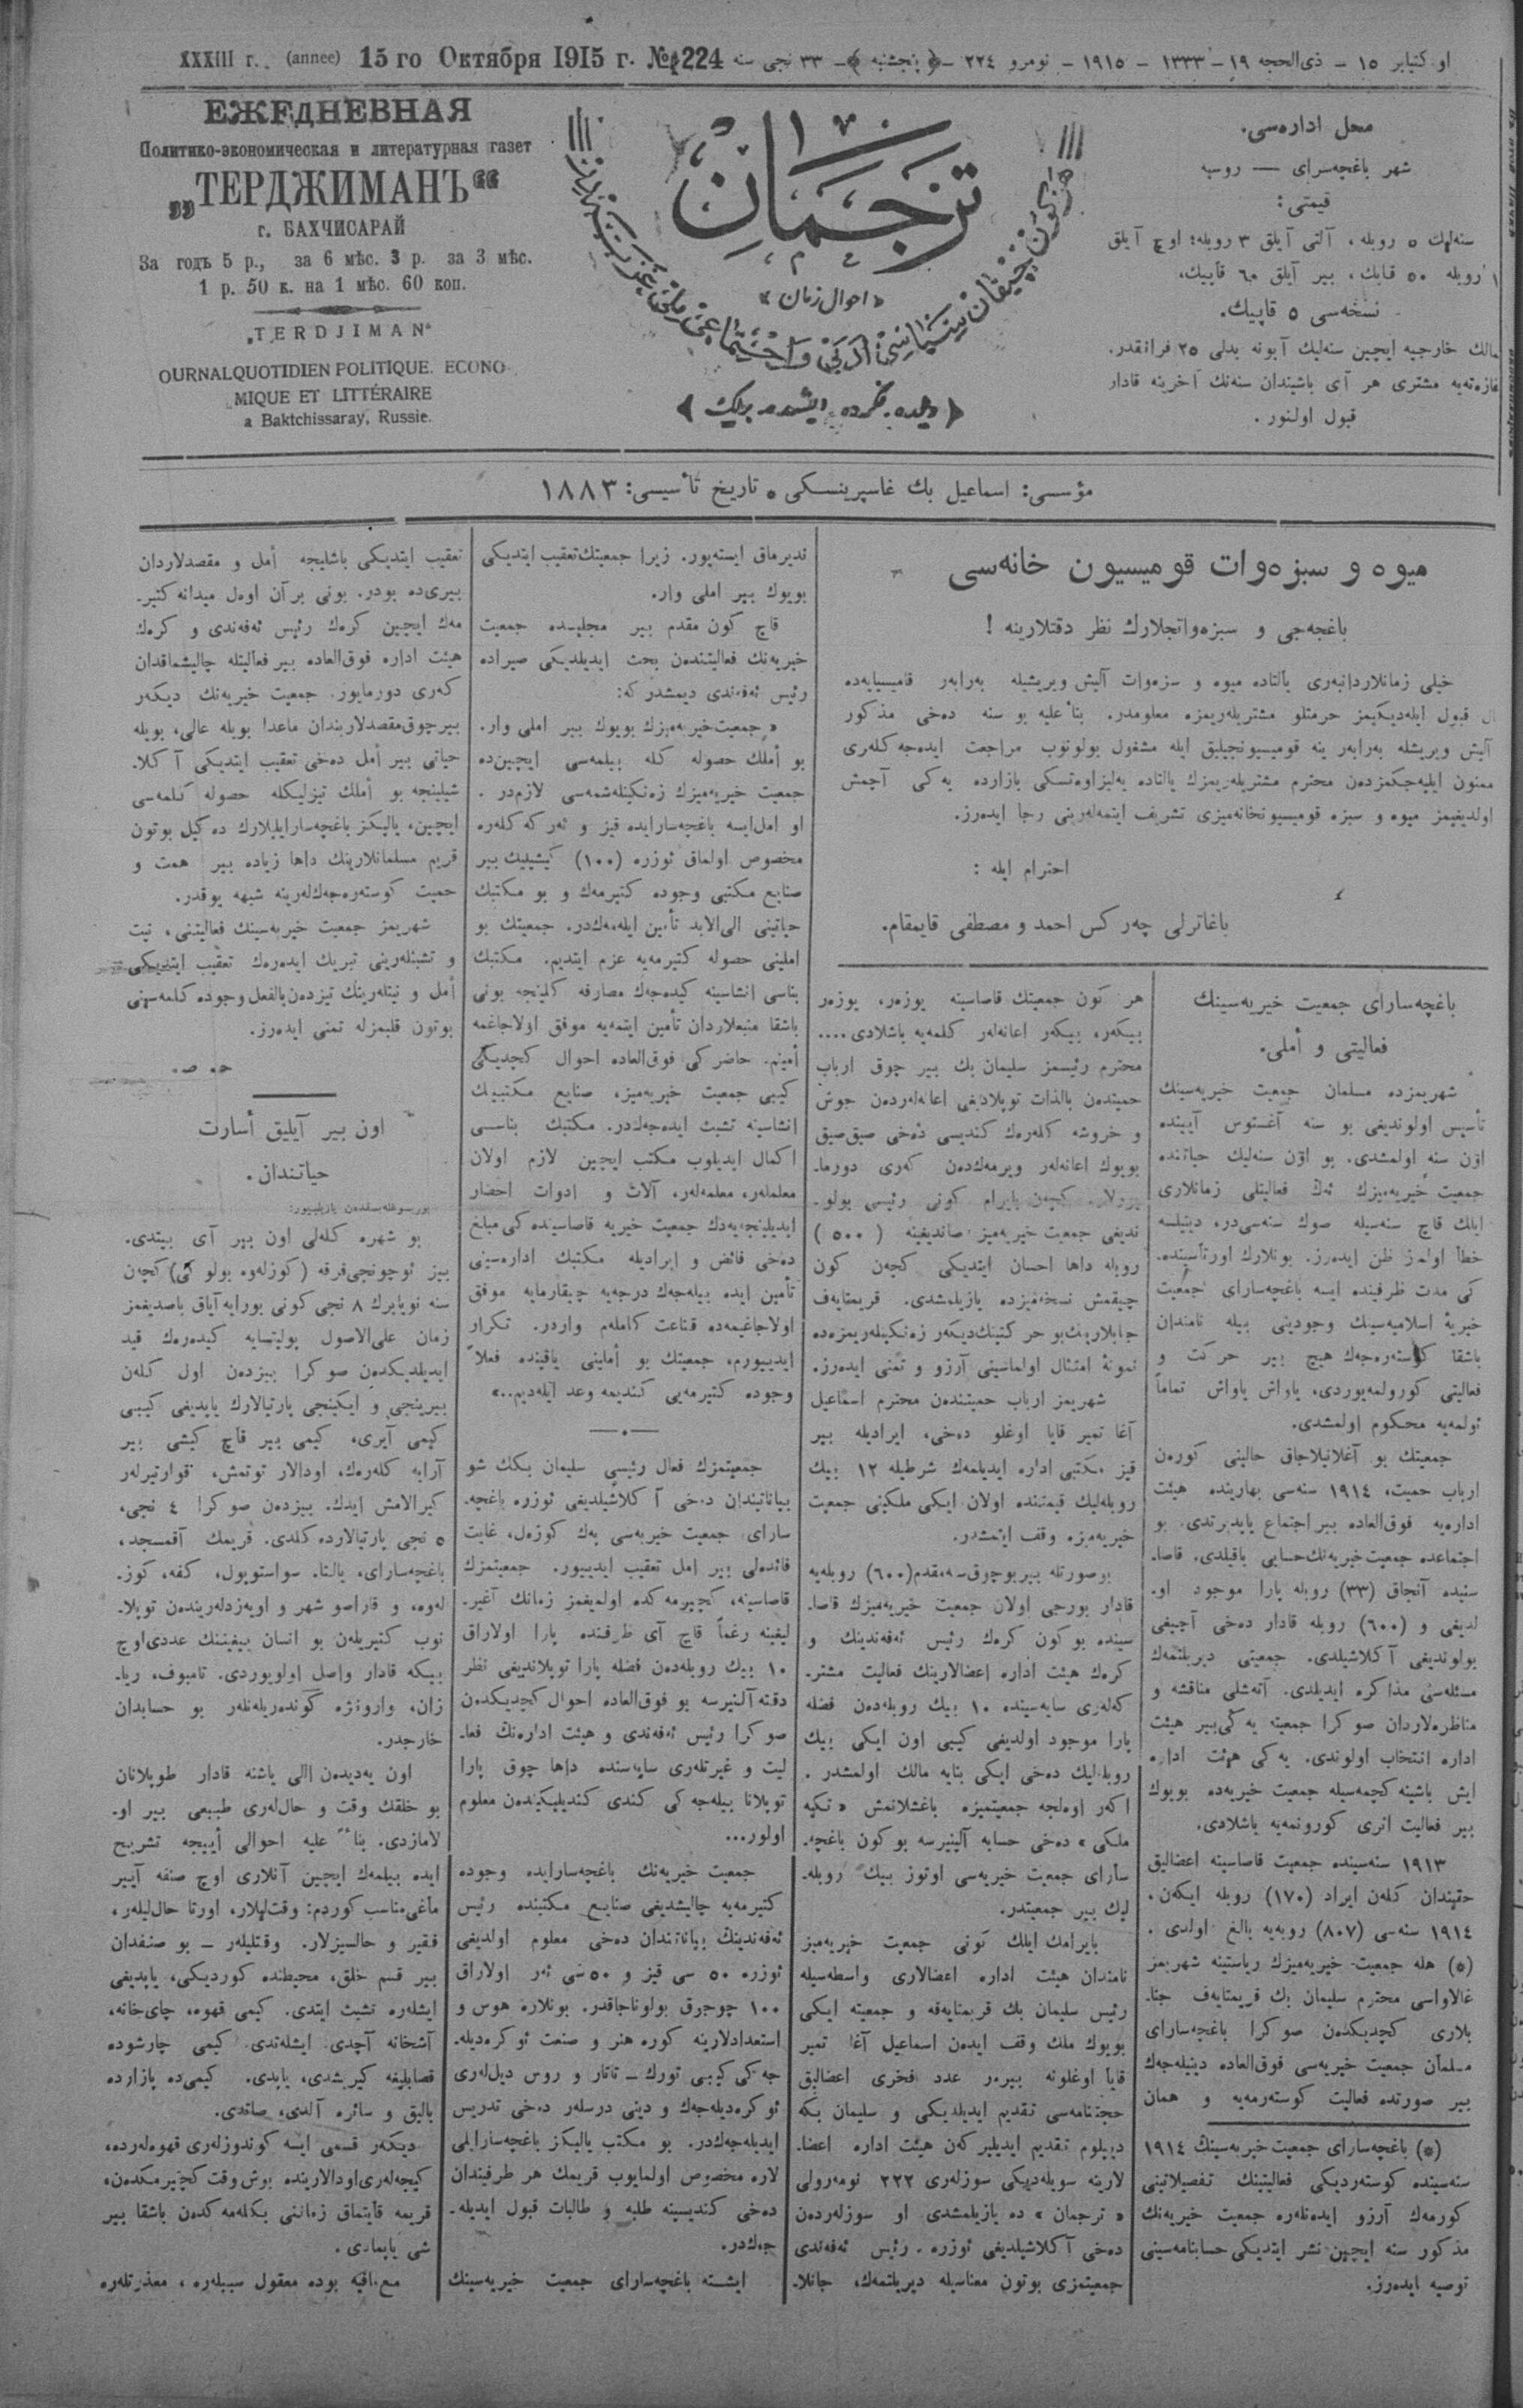 XXXIII г. (annee) 15 го Октября 1915 г. № 224
اوكتیابر ١٥ – ذی‌الحجه ١٩ – ١٣٣٣ – ١٩١٥ – نومرو ٢٢٤ – ﴿ پنجشنبه ﴾ – ٣٣ نجی سنه
ЕЖЕДНЕВНАЯ
Политико-экономическая и литературная газет
„ТЕРДЖИМАНЪ“
г. БАХЧИСАРАЙ
За годъ 5 р., за 6 мѣс. 3 р. за 3 мѣс.
1 р. 50 к. на 1 мѣс. 60 коп.
„TERDJIMAN“
OURNALQUOTIDIEN POLITIQUE. ECONO-
MIQUE ET LITTÉRAIRE
a Baktchissaray, Russie.
ترجمان
« احوال زمان »
﴿ دیلده، فكرده، ایشده بیرلك ﴾
محل اداره‌سی.
شهر باغچه‌سرای — روسیه
قیمتی :
سنه‌لیك ٥ روبله، آلتی آیلق ٣ روبله؛ اوچ آیلق
١ روبله ٥٠ قاپك، بیر آیلق ٦٠ قاپیك،
نسخه‌سی ٥ قاپیك.
مالك خارجیه ایچین سنه‌لیك آبونه بدلی ٢٥ فرانقدر.
غازه‌ته‌یه مشتری هر آی باشیندان سنه‌نك آخرینه قادار
قبول اولنور.
مؤسسی: اسماعیل بك غاسپرینسكی ٭ تاریخ تأسیسی: ١٨٨٣
میوه و سبزه‌وات قومیسیون خانه‌سی
باغچه‌جی و سبزه‌واتجلارك نظر دقتلارینه !
خیلی زمانلاردانبه‌ری یالتاده میوه و سبزه‌وات آلیش ویریشیله به‌رابه‌ر قامیسیایه‌ده
مال قبول ایله‌دیكیمز حرمتلو مشتریله‌ریمزه معلومدر. بنأ علیه بو سنه ده‌خی مذكور
آلیش ویریشله به‌رابه‌ر ینه قومیسیونجیلیق ایله مشغول بولونوب مراجعت ایده‌جه كله‌ری
ممنون ایلیه‌جكمزدن محترم مشتریله‌ریمزك یالتاده یه‌لیزاوه‌تسكی بازارده یه‌كی آچمش
اولدیغیمز میوه و سبزه قومیسیونخانه‌میزی تشریف ایتمه‌له‌رینی رجا ایده‌رز.
احترام ایله :
باغاترلی چه‌ركس احمد و مصطفی قایمقام.
باغچه‌سارای جمعیت خیریه‌سینك
فعالیتی و أملی.
شهریمزده مسلمان جمعیت خیریه‌سینك
تأسیس اولوندیغی بو سنه آغستوس آیینده
اون سنه اولمشدی. بو اون سنه‌لیك حیاتنده
جمعیت خیریه‌میزك ئه‌ك فعالیتلی زمانلاری
ایلك قاچ سنه‌سیله صوك سنه‌سی‌در، دینیلسه
خطأ اولمز ظن ایده‌رز. بونلارك اورتاسینده‌
كی مدت ظرفینده ایسه باغچه‌سارای جمعیت
خیریهٔ اسلامیه‌سینك وجودینی بیله نامندان
باشقا كوسته‌ره‌جه‌ك هیچ بیر حركت و
فعالیتی كورولمه‌یوردی، یاواش یاواش تماماً
ئولمه‌یه محكوم اولمشدی.
جمعیتك بو آغلانیلاجاق حالینی كوره‌ن
ارباب حمیت، ١٩١٤ سنه‌سی بهارینده هیئت
اداره‌یه فوق‌العاده بیر اجتماع یاپدیرتدی. بو
اجتماعده جمعیت خیریه‌نك حسابی باقیلدی. قاصا‌
سنیده آنجاق (٣٣) روبله پارا موجود او‌
لدیغی و (٦٠٠) روبله قادار ده‌خی آچیغی
بولوندیغی آكلاشیلدی. جمعیتی دیریلتمه‌ك
مسئله‌سی مذاكره ایدیلدی. آته‌شلی مناقشه و
مناظره‌لاردان صوكرا جمعیته یه‌كی بیر هیئت
اداره انتخاب اولوندی. یه‌كی هیئت اداره
ایش باشینه كچمه‌سیله جمعیت خیریه‌ده بویوك
بیر فعالیت اثری كورونمه‌یه باشلادی.
١٩١٣ سنه‌سینده جمعیت قاصاسینه اعضالیق
حقیندان كله‌ن ایراد (١٧٠) روبله ایكه‌ن،
١٩١٤ سنه‌سی (٨٠٧) روبه‌یه بالغ اولدی.
(*) هله جمعیت خیریه‌میزك ریاستینه شهریمز
غالاواسی محترم سلیمان بك قریمتایه‌ف جنا‌
بلاری كچدیكدن صوكرا باغچه‌سارای
مسلمان جمعیت خیریه‌سی فوق‌العاده دینیله‌جه‌ك
بیر صورتده فعالیت كوسته‌رمه‌یه و همان
(*) باغچه‌سارای جمعیت خیریه‌سینك ١٩١٤
سنه‌سینده كوسته‌ردیكی فعالیتینك تفصیلاتینی
كورمه‌ك آرزو ایده‌نله‌ره جمعیت خیریه‌نك
مذكور سنه ایچین نشر ایتدیكی حسابنامه‌سینی
توصیه ایده‌رز.
هر كون جمعیتك قاصاسینه یوزه‌ر، یوزه‌ر
بیكه‌ر، بیكه‌ر اعانه‌له‌ر كلمه‌یه باشلادی....
محترم رئیسمز سلیمان بك بیر چوق ارباب
حمیتدن بالذات توپلادیغی اعانه‌له‌ردن جوش
و خروشه كله‌ره‌ك كندیسی ده‌خی صیق‌صیق
بویوك اعانه‌له‌ر ویرمه‌كده‌ن كه‌ری دورما‌
یورلار. كچه‌ن بایرام كونی رئیسی بولو‌
ندیغی جمعیت خیریه‌میز صاندیغینه (٥٠٠)
روبله داها احسان ایتدیكی كچه‌ن كون
چیقمش نسخه‌میزده یازیلمشدی. قریمتایه‌ف
جنابلارینك بو حركتینك دیكه‌ر زه‌نكینله‌ریمزه‌ده
نمونهٔ امتثال اولماسینی آرزو و تمنی ایده‌رز.
شهریمز ارباب حمیتندن محترم اسماعیل
آغا تمیر قایا اوغلو ده‌خی، ایرادیله بیر
قیز مكتبی اداره ایدیلمه‌ك شرطیله ١٢ بیك
روبله‌لیك قیمتنده اولان ایكی ملكینی جمعیت
خیریه‌مزه وقف ایتمشدر.
بوصورتله بیر بوچوق سنه مقدم (٦٠٠) روبله‌یه
قادار بورجی اولان جمعیت خیریه‌میزك قاصا‌
سینده بوكون كره‌ك رئیس ئه‌فه‌ندینك و
كره‌ك هیئت اداره اعضالارینك فعالیت مشتر‌
كه‌له‌ری سایه‌سینده ١٠ بیك روبله‌دن فضله
پارا موجود اولدیغی كیبی اون ایكی بیك
روبله‌لیك ده‌خی ایكی بنایه مالك اولمشدر.
اكه‌ر اوه‌لجه جمعیتمیزه باغشلانمش «تكیه
ملكی» ده‌خی حسابه آلینیرسه بوكون باغچه‌
سارای جمعیت خیریه‌سی اوتوز بیك روبله‌
لیك بیر جمعیتدر.
بایرامك ایلك كونی جمعیت خیریه‌میز
نامندان هیئت اداره اعضالاری واسطه‌سیله
رئیس سلیمان بك قریمتایه‌فه و جمعیته ایكی
بویوك ملك وقف ایده‌ن اسماعیل آغا تمیر
قایا اوغلونه بیره‌ر عدد فخری اعضالیق
حجتنامه‌سی تقدیم ایدیلدیكی و سلیمان بكه
دیپلوم تقدیم ایدیلیركه‌ن هیئت اداره اعضا‌
لارینه سویله‌دیكی سوزله‌ری ٢٢٢ نومه‌رولی
«ترجمان» ده یازیلمشدی او سوزله‌ردن
ده‌خی آكلاشیلدیغی ئوزره، رئیس ئه‌فه‌ندی
جمعیتمزی بوتون معناسیله دیریلتمه‌ك، جانلا‌
ندیرماق ایسته‌یور. زیرا جمعیتك تعقیب ایتدیكی
بویوك بیر املی وار.
قاچ كون مقدم بیر مجلیسده جمعیت
خیریه‌نك فعالیتندن بحث ایدیلدیكی صیراده
رئیس ئه‌فه‌ندی دیمشدر كه:
«جمعیت خیریه‌میزك بویوك بیر املی وار.
بو أملك حصوله كله بیلمه‌سی ایچین‌ده
جمعیت خیریه‌میزك زه‌نكینله‌شمه‌سی لازم‌در.
او امل ایسه باغچه‌سارایده قیز و ئه‌ركه كله‌ره
مخصوص اولماق ئوزره (١٠٠) كیشیلیك بیر
صنایع مكتبی وجوده كتیرمه‌ك و بو مكتبك
حیاتینی الی‌الابد تأمین ایله‌مه‌كدر. جمعیتك بو
املینی حصوله كتیرمه‌یه عزم ایتدیم. مكتبك
بناسی انشاسینه كیده‌جه‌ك مصارفه كلینجه بونی
باشقا منبعلاردان تأمین ایتمه‌یه موفق اولاجاغمه
أمینم. حاضركی فوق‌العاده احوال كچدیكی
كیبی جمعیت خیریه‌میز، صنایع مكتبینك
انشاسینه تشبث ایده‌جه‌كدر. مكتبك بناسی
اكمال ایدیلوب مكتب ایچین لازم اولان
معلمله‌ر، معلمه‌له‌ر، آلات و ادوات احضار
ایدیلینجه‌یه‌دك جمعیت خیریه قاصاسینده‌كی مبلغ
ده‌خی فائض و ایرادیله مكتبك اداره‌سینی
تأمین ایده بیله‌جه‌ك درجه‌یه چیقارمایه موفق
اولاجاغیمه‌ده قناعت كامله‌م واردر. تكرار
ایدییورم، جمعیتك بو أملینی یاقینده فعلاً
وجوده كتیرمه‌یی كندیمه وعد ایله‌دیم..»
جمعیتمزك فعال رئیسی سلیمان بكك شو
بیاناتیندان ده‌خی آكلاشیلدیغی ئوزره باغچه‌
سارای جمعیت خیریه‌سی یه‌ك كوزه‌ل، غایت
فائده‌لی بیر امل تعقیب ایدییور. جمعیتمزك
قاصاسینه، كچیرمه‌كده اولدیغمز زمانك آغیر‌
لیغینه رغماً قاچ آی ظرفنده پارا اولاراق
١٠ بیك روبله‌دن فضله پارا توپلاندیغی نظر
دقته آلنیرسه بو فوق‌العاده احوال كچدیكدن
صوكرا رئیس ئه‌فه‌ندی و هیئت اداره‌نك فعا‌
لیت و غیرتله‌ری سایه‌سنده داها چوق پارا
توپلانا بیله‌جه‌كی كندی كندیلیكیندن معلوم
اولور...
جمعیت خیریه‌نك باغچه‌سارایده وجوده
كتیرمه‌یه چالیشدیغی صنایع مكتبنده رئیس
ئه‌فه‌ندینك بیاناتندان ده‌خی معلوم اولدیغی
ئوزره ٥٠ سی قیز و ٥٠ سی ئه‌ر اولاراق
١٠٠ چوجوق بولوناجاقدر. بونلاره هوس و
استعدادلارینه كوره هنر و صنعت ئوكره‌دیله‌
جه‌كی كیبی تورك – تاتار و روس دیل‌له‌ری
ئوكره‌دیله‌جه‌ك و دینی درسله‌ر ده‌خی تدریس
ایدیله‌جه‌كدر. بو مكتب یالیكز باغچه‌سارایلی
لاره مخصوص اولمایوب قریمك هر طرفیندان
ده‌خی كندیسینه طلبه و طالبات قبول ایدیله‌
جه‌كدر.
ایشته باغچه‌سارای جمعیت خیریه‌سینك
تعقیب ایتدیكی باشلیجه أمل و مقصدلاردان
بیری‌ده بودر. بونی بر آن اوه‌ل میدانه كتیر‌
مه‌ك ایچین كره‌ك رئیس ئه‌فه‌ندی و كره‌ك
هیئت اداره فوق‌العاده بیر فعالیتله چالیشماقدان
كه‌ری دورمایور. جمعیت خیریه‌نك دیكه‌ر
بیر چوق مقصدلاریندان ماعدا بویله عالی، بویله
حیاتی بیر أمل ده‌خی تعقیب ایتدیكی آكلا‌
شیلینجه بو أملك تیزلیكله حصوله كلمه‌سی
ایچین، یالیكز باغچه‌سارایلیلارك ده‌كیل بوتون
قریم مسلمانلارینك داها زیاده بیر همت و
حمیت كوسته‌ره‌جه‌كله‌رینه شبهه یوقدر.
شهریمز جمعیت خیریه‌سینك فعالیتنی، نیت
و تشبثله‌رینی تبریك ایده‌ره‌ك تعقیب ایتدیكی
أمل و نیتله‌رینك تیزده‌ن بالفعل وجوده كلمه‌سینی
بوتون قلبمزله تمنی ایده‌رز.
ح. ص.
اون بیر آیلیق أسارت
حیاتندان.
بو شهره كله‌لی اون بیر آی بیتدی.
بیز ئوچونجی فرقه (كوزله‌وه یولوكی) كچه‌ن
سنه نویابرك ٨ نجی كونی بورایه آیاق باصدیغمز
زمان علی‌الاصول پولیتسایه كیده‌ره‌ك قید
ایدیلدیكدن صوكرا بیزدن اول كله‌ن
بیرینجی و ایكینجی پارتیالارك یاپدیغی كیبی
كیمی آیری، كیمی بیر قاچ كیشی بیر
آرایه كله‌ره‌ك، اودالار توتمش، قوارتیرله‌ر
كیرالامش ایدك. بیزدن صوكرا ٤ نجی،
٥ نجی پارتیالارده كلدی. قریمك آقمسجد،
باغچه‌سارای، یالتا، سواستوپول، كفه، كوز‌
له‌وه، و قاراصو شهر و اویه‌زدله‌ریندن توپلا‌
نوب كتیریله‌ن بو انسان ییغیننك عددی اوچ
بیكه قادار واصل اولویوردی. تامبوف، ریا‌
زان، وارونژه كونده‌ریله‌نله‌ر بو حسابدان
خارجدر.
اون یه‌دیدن اللی یاشنه قادار طوپلانان
بو خلقك وقت و حال‌له‌ری طبیعی بیر او‌
لامازدی. بنأً علیه احوالی أییجه تشریح
ایده بیلمه‌ك ایچین آنلاری اوچ صنفه آییر
ماغی مناسب كوردم: وقتلیلار، اورتا حاللیله‌ر،
فقیر و حالسیزلار. وقتلیله‌ر – بو صنفدان
بیر قسم خلق، محیطنده كوردیكی، یاپدیغی
ایشله‌ره تشبث ایتدی. كیمی قهوه، چای‌خانه،
آشخانه آچدی ایشله‌تدی. كیمی چارشوده
قصابلیغه كیریشدی، یاپدی. كیمی‌ده بازارده
بالیق و سائره آلدی، صاتدی.
دیكه‌ر قسمی ایسه كوندوزله‌ری قهوه‌له‌رده،
كیجه‌له‌ری اودالارینده بوش وقت كچیرمكدن،
قریمه قایتماق زماننی بكله‌مه كدن باشقا بیر
شی یاپمادی.
مع‌مافیه بوده معقول سببله‌ره، معذرتله‌ره